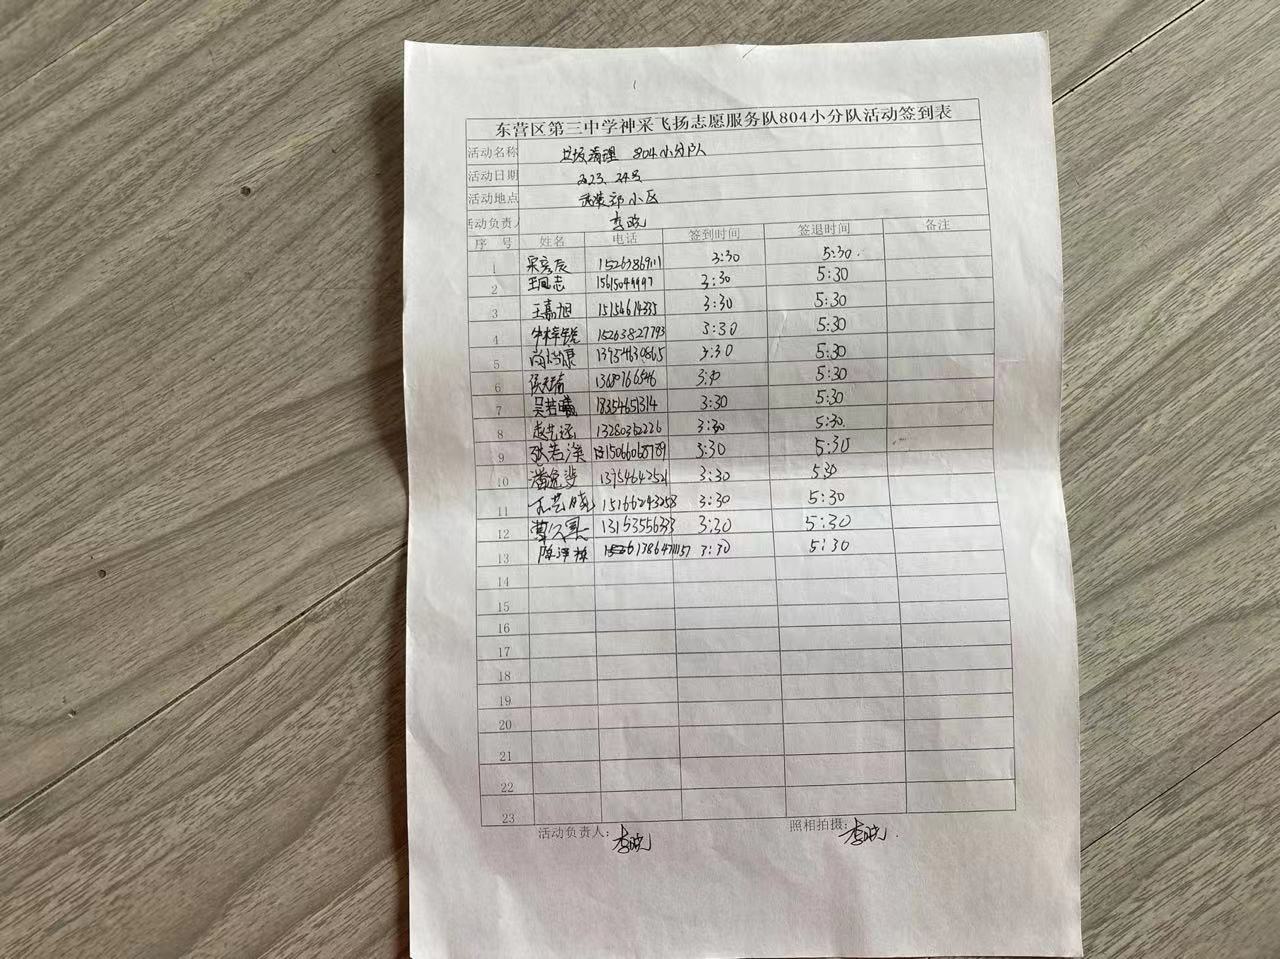 东营区第三中学神采飞扬志愿服务队804小分队活动签到表
活动名称 垃圾清理 804小分队
活动日期 2023、24号
活动地点 武装部小区
活动负责人 李晓
序 号 姓名 电话 签到时间 签退时间 备注
1 15263869111 3:30 5:30.
2 王凤志 15615049997 3:30 5:30
3 王嘉旭 15154614335 3:30 5:30
4 15263827793 3:30 5:30
5 尚 康 13954630865 3:30 5:30
6 3:30 5:30
7 吴若曦 18354651314 3:30 5:30
8 赵艺涵 13280352226 3:30 5:30.
9 张若渼 15066068789 3:30 5:30
10 潘逸斐 3:30 5:30
11 15166243258 3:30 5:30
12 3:30 5:30
13 3:30 5:30
14
15
16
17
18
19
20
21
22
23
活动负责人: 李晓 照相拍摄: 李晓.